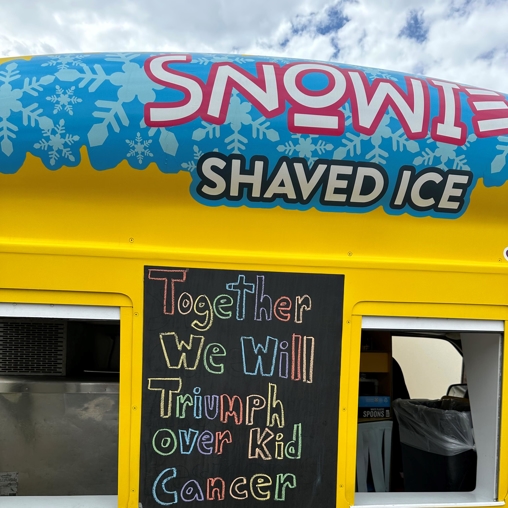 SNOWIE
SHAVED ICE
Together
We Will
Triumph
over Kid
Cancer
SPOONS